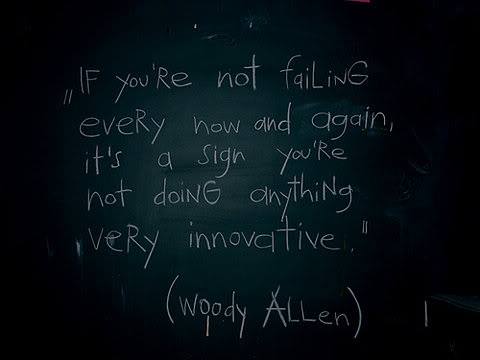 „IF YOU'RE not faiLiNG
eveRy now and again,
it's a sign you're
not doiNG anythiNG
veRy innovative."
(Woody ALLen)